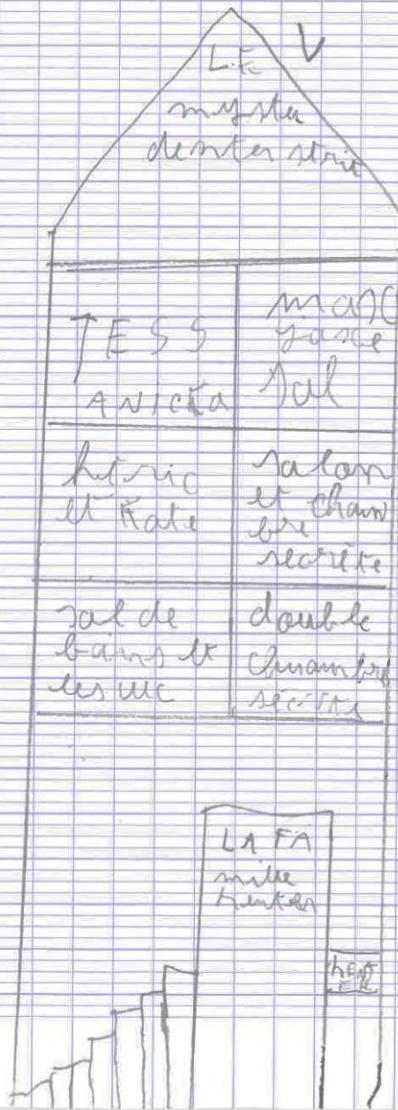 L.E
myster
denter stric
TESS
ANICKA
masc
sal
héric
et Kate
salon
et cham
bre
secrète
sal de
bains et
les wc
double
chambre
LA FA
mille
henter